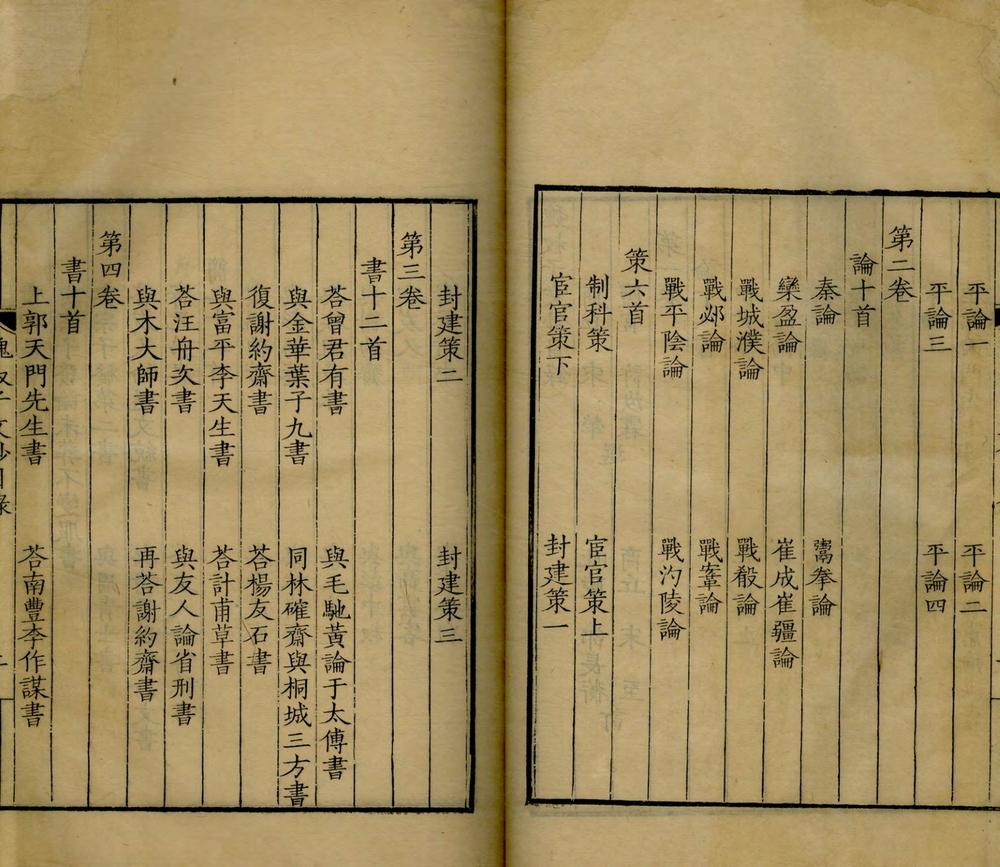 平論一　平論二
平論三　平論四
第二卷
論十首
秦論　鬻拳論
欒盈論　崔成崔疆論
戰城濮論　戰殽論
戰邲論　戰鞌論
戰平陰論　戰汋陵論
策六首
制科策　宦官策上
宦官策下　封建策一
封建策二　封建策三
第三卷
書十二首
荅曾君有書　與毛馳黃論于太傅書
與金華葉子九書　同林確齋與桐城三方書
復謝約齋書　荅楊友石書
與富平李天生書　荅計甫草書
荅汪舟次書　與友人論省刑書
與木大師書　再荅謝約齋書
第四卷
書十首
上郭天門先生書　荅南豐李作謀書